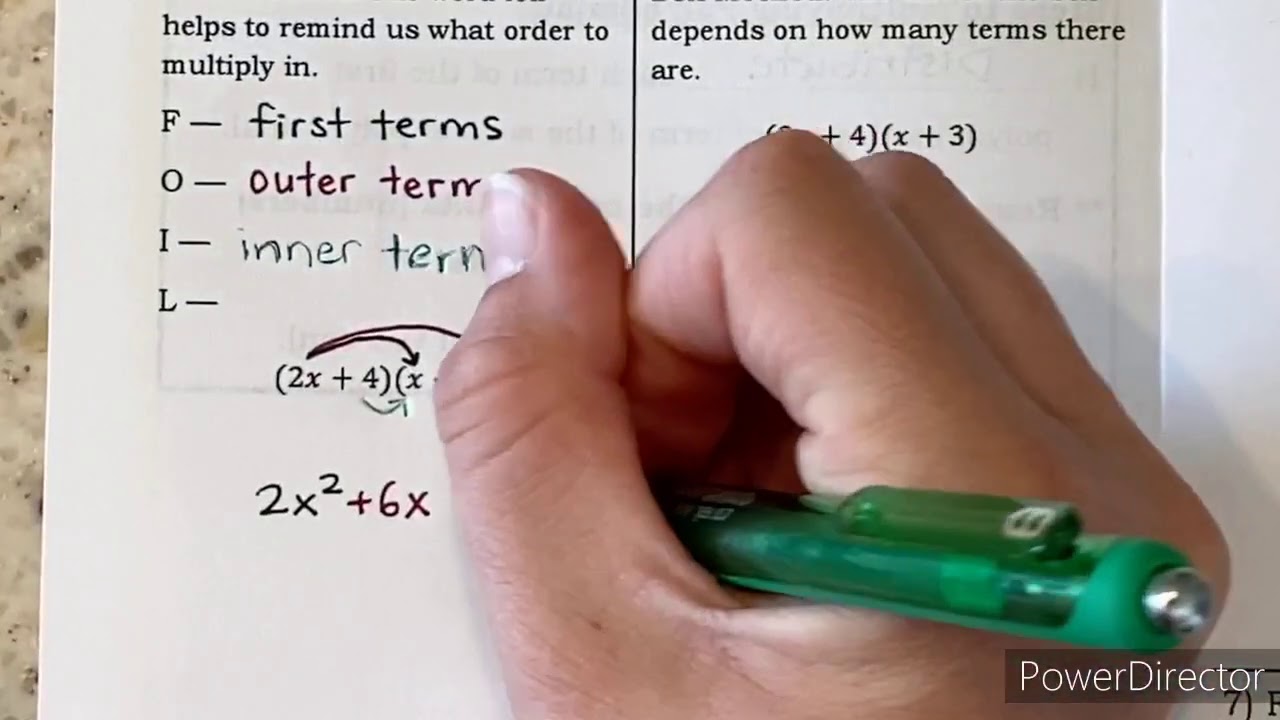 helps to remind us what order to
multiply in.
F — first terms
O — outer term
I — inner
L —
(2x + 4)(x
2x²+6x
depends on how many terms there
are.
+ 4)(x + 3)
PowerDirector
7)